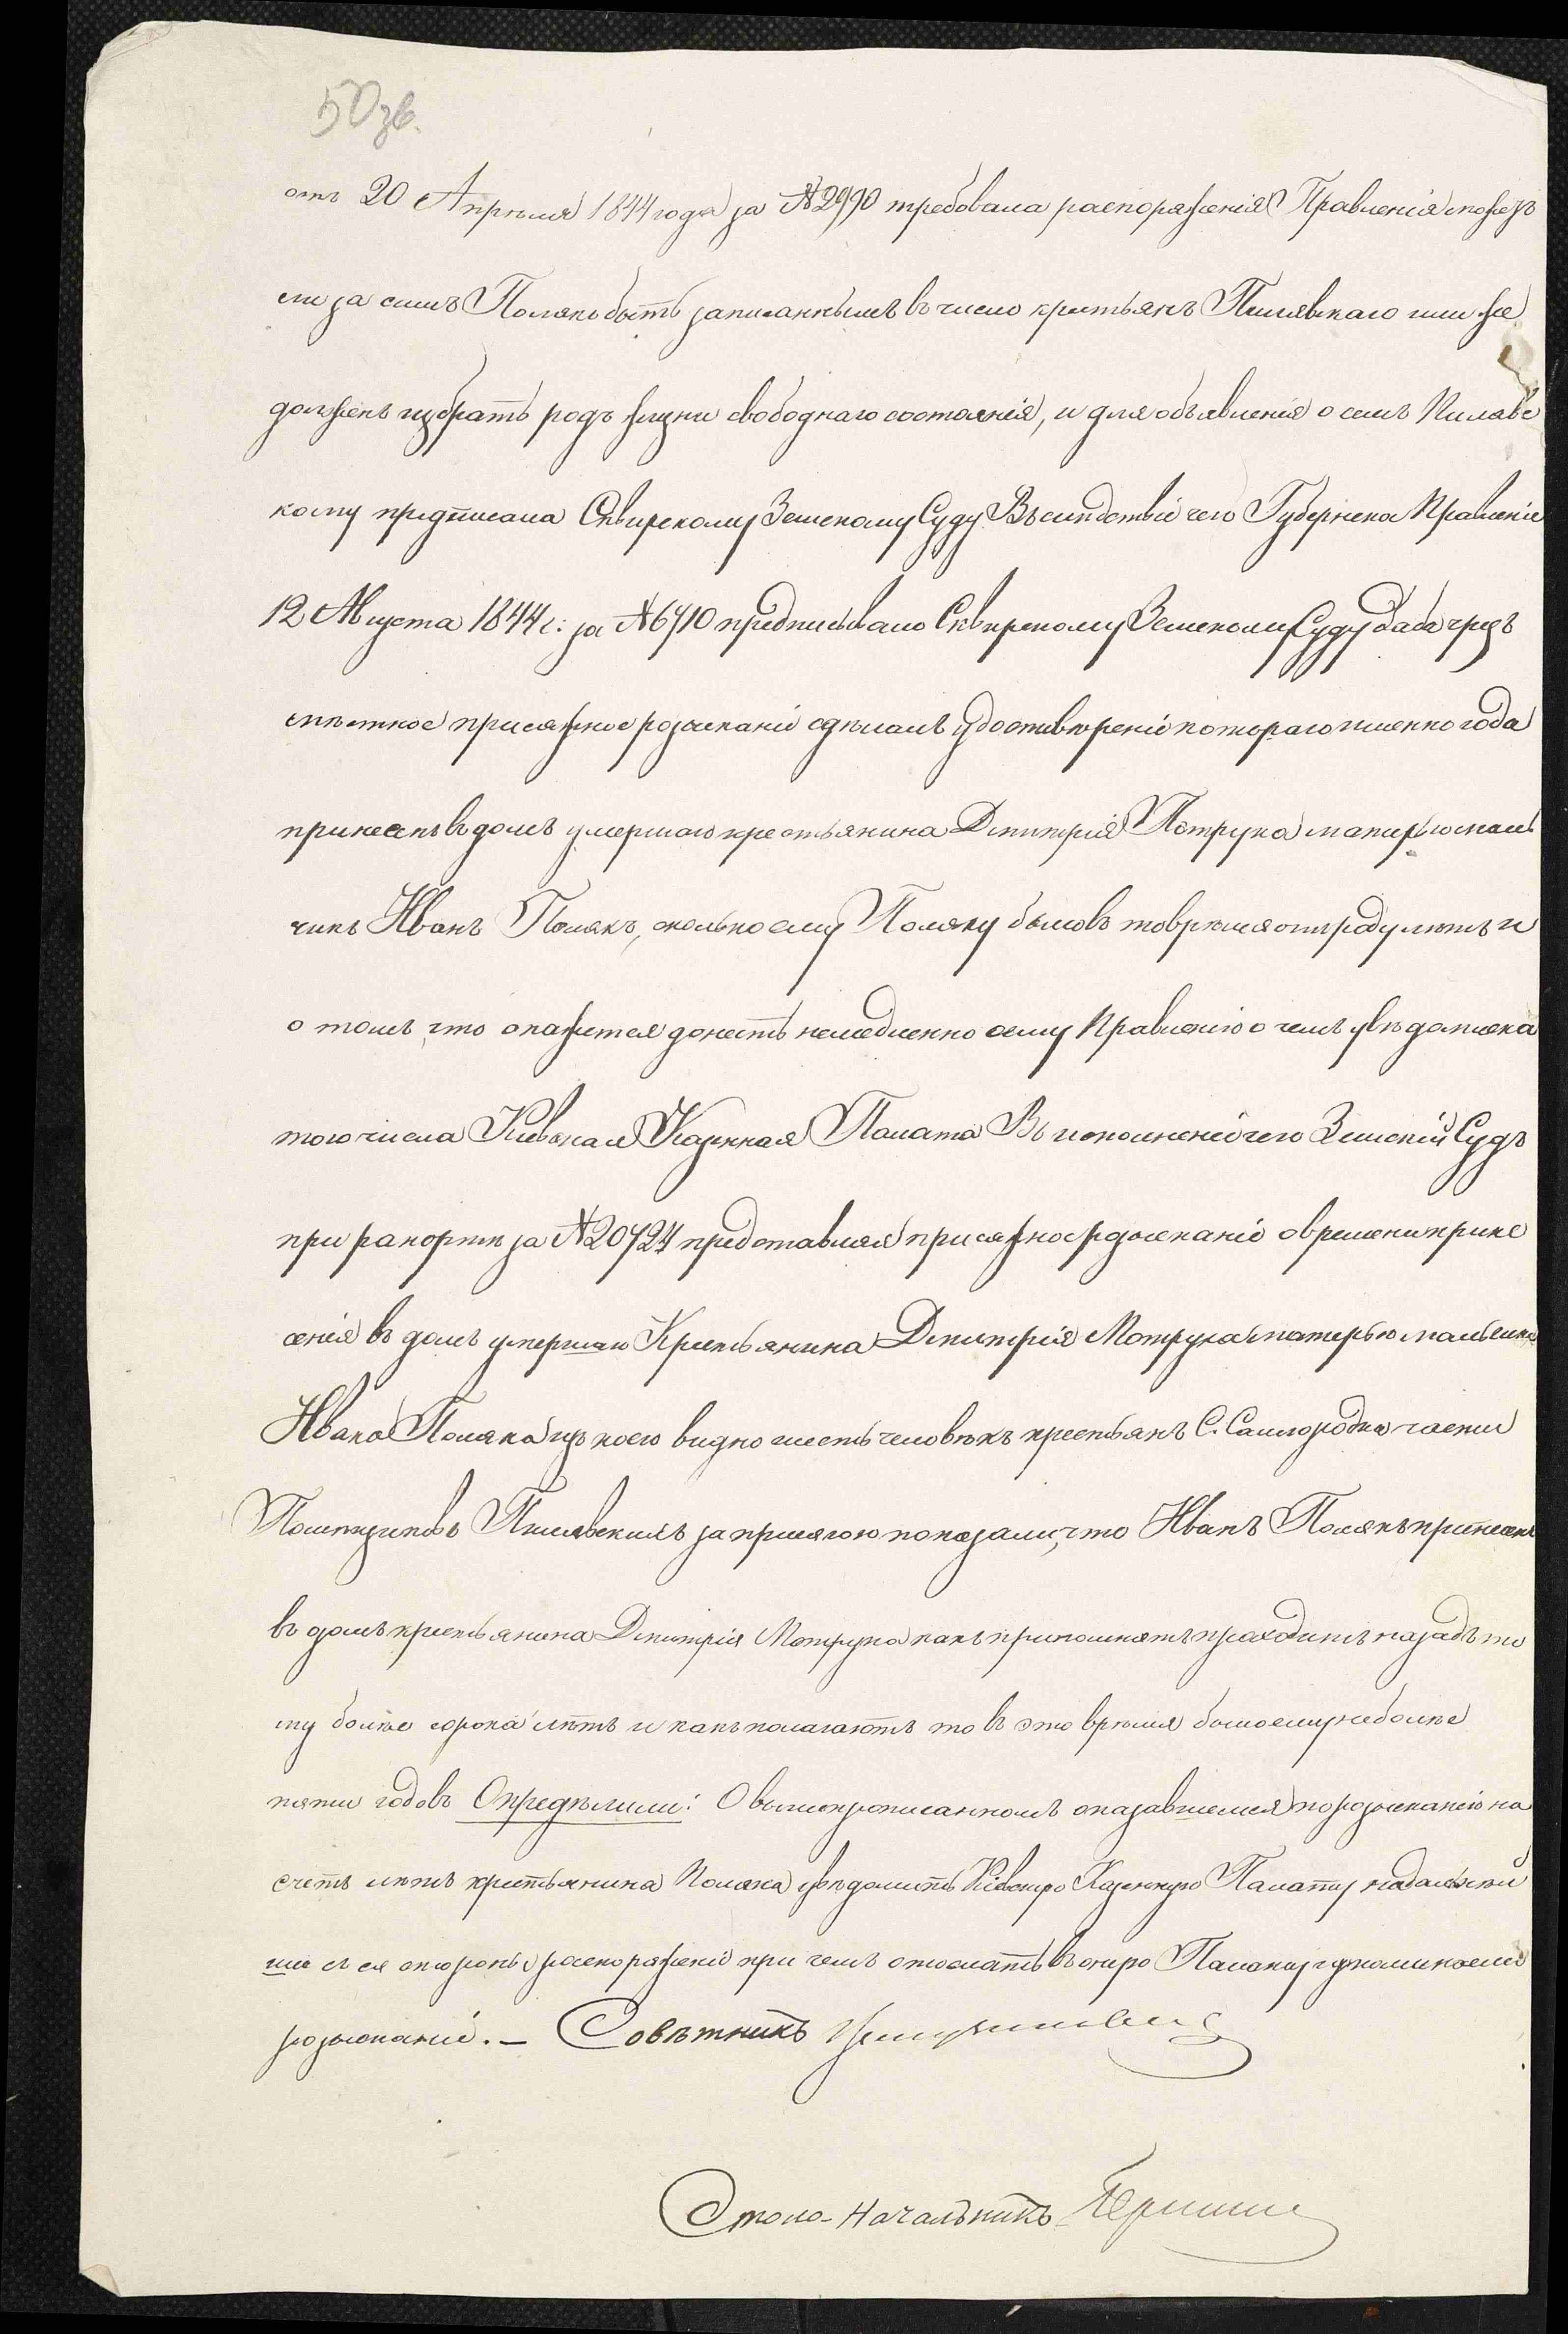 50 зв.
отъ 20 Апрѣля 1844 года за №2990 требовала распоряженія Правленія можетъ
ли за симъ Полякъ быть записаннымъ въ число крестьянъ Пилявскаго или же
долженъ избрать родъ жизни свободнаго состоянія, и для объявленія о семъ Пилявс
кому предписала Сквирскому Земскому Суду Въ слѣдствіе чего Губернское Правленіе
12 Августа 1844 г: за №6710 предписывало Сквирскому Земскому Суду дабы чрезъ
мѣстное присяжное розысканіе сдѣлалъ удостовѣреніе котораго именно года
принесенъ въ домъ умершаго крестьянина Дмитрія Мотрука матерью маль
чикъ Иванъ Полякъ, сколько ему Поляку было въ то время отъ роду лѣтъ и
о томъ что окажется донесть немедленно сему Правленію о чемъ увѣдомлена
того числа Кіевская Казенная Палата Въ исполненіе чего Земскій Судъ
при рапортѣ за №20424 представляя присяжное розысканіе о времени прине
сенія въ домъ умершаго Крестьянина Дмитрія Мотрука матерью мальчика
Ивана Поляка изъ коего видно шесть человѣкъ крестьянъ С. Самгородка части
Помѣщиковъ Пилявскихъ за присягою показали, что Иванъ Полякъ принесенъ
въ домъ крестьянина Дмитрія Мотрука какъ припомнятъ проходитъ назадъ то
му болѣе сорока лѣтъ и какъ полагаютъ то въ это время было ему не болѣе
пяти годовъ Опредѣлили: О вышепрописанномъ оказавшемся по розысканію на
счетъ лѣтъ крестьянина Поляка увѣдомить Кіевскую Казенную Палату къ дальнѣй
шему съ ея стороны распоряженію при чемъ отослать въ оную Палату и
розысканіе. – Совѣтникъ
Столо-Начальникъ